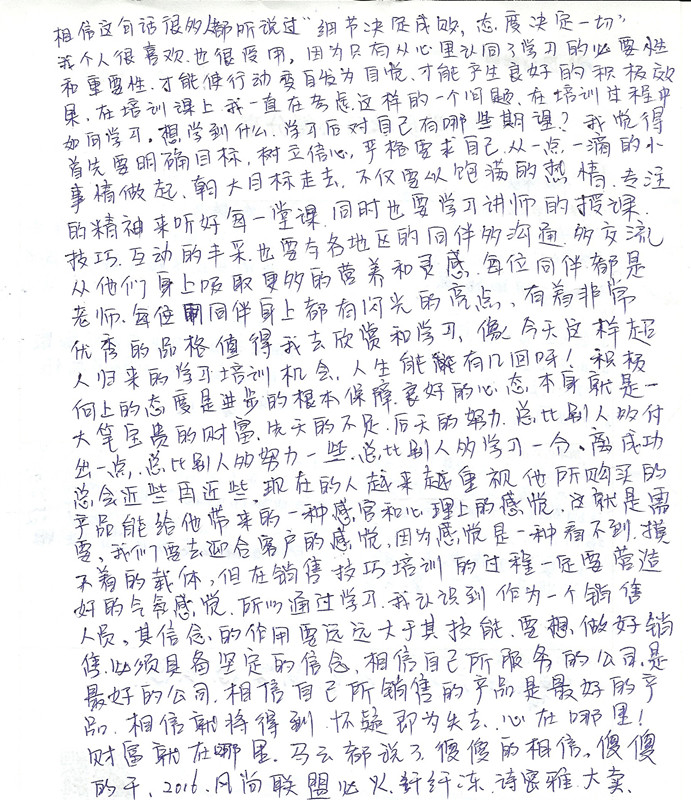 相信这句话很多人都听说过“细节决定成败，态度决定一切”
我个人很喜欢也很受用，因为只有从心里认同了学习的必要性
和重要性.才能使行动变自发为自觉.才能产生良好的积极效
果.在培训课上我一直在考虑这样的一个问题.在培训过程中
如何学习.想学到什么.学习后对自己有哪些期望？我觉得
首先要明确目标，树立信心，严格要求自己.从一点一滴的小
事情做起.朝大目标走去.不仅要以饱满的热情.专注
的精神来听好每一堂课.同时也要学习讲师的授课
技巧.互动的丰采.也要与各地区的同伴多沟通多交流
从他们身上吸取更多的营养和灵感.每位同伴都是
老师.每位同伴身上都有闪光的亮点、有着非常
优秀的品格值得我去欣赏和学习，像今天这样超
人归来的学习培训机会，人生能有几回呀！积极
向上的态度是进步的根本保障.良好的心态.本身就是一
大笔宝贵的财富.先天的不足.后天的努力.总比别人多付
出一点.总比别人多努力一些.总比别人多学习一分.离成功
总会近些再近些.现在的人越来越重视他所购买的
产品能给他带来的一种感官和心理上的感觉.这就是需
要.我们要去迎合客户的感觉，因为感觉是一种看不到.摸
不着的载体，但在销售技巧培训的过程一定要营造
好的气氛感觉.所以通过学习.我认识到作为一个销售
人员，其信念的作用要远远大于其技能.要想做好销
售.必须具备坚定的信念，相信自己所服务的公司是
最好的公司.相信自己所销售的产品是最好的产
品.相信就将得到.怀疑即为失去.心在哪里！
财富就在哪里.马云都说了.傻傻的相信，傻傻
的干、2016.风尚联盟必火.纤纤冻.诗蜜雅大卖.